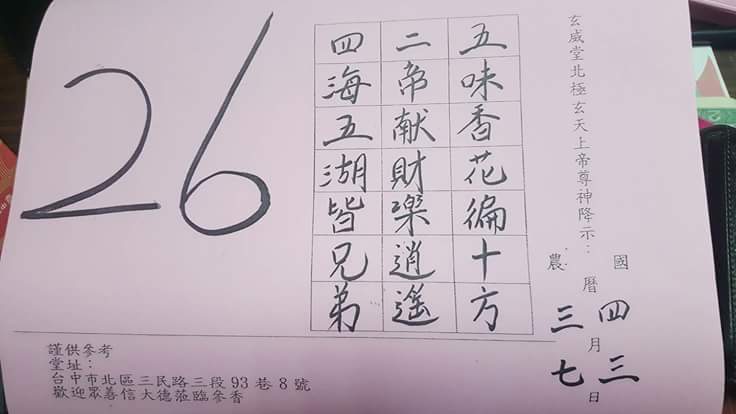 玄威堂北極玄天上帝尊神降示：
國 農
曆
四 三
月
三 七
日
五味香花徧十方
二帝献財樂逍遙
四海五湖皆兄弟
26
謹供參考
堂址：
台中市北區三民路三段 93 巷 8 號
歡迎眾善信大德蒞臨參香